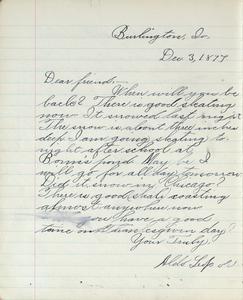 Burlington, Io.
Dec 3, 1897
Dear friend:—
When will you be
back? There is good skating
now It snowed last night
The snow is about three inches
deep I am going skating to-
night after school at
pond May be I
will go for all day tomorrow
Did it snow in Chicago?
There is good skate coasting
almost anywhere now
you have a good
time on thanksgiven day?
Your Truly
Aldo Leop